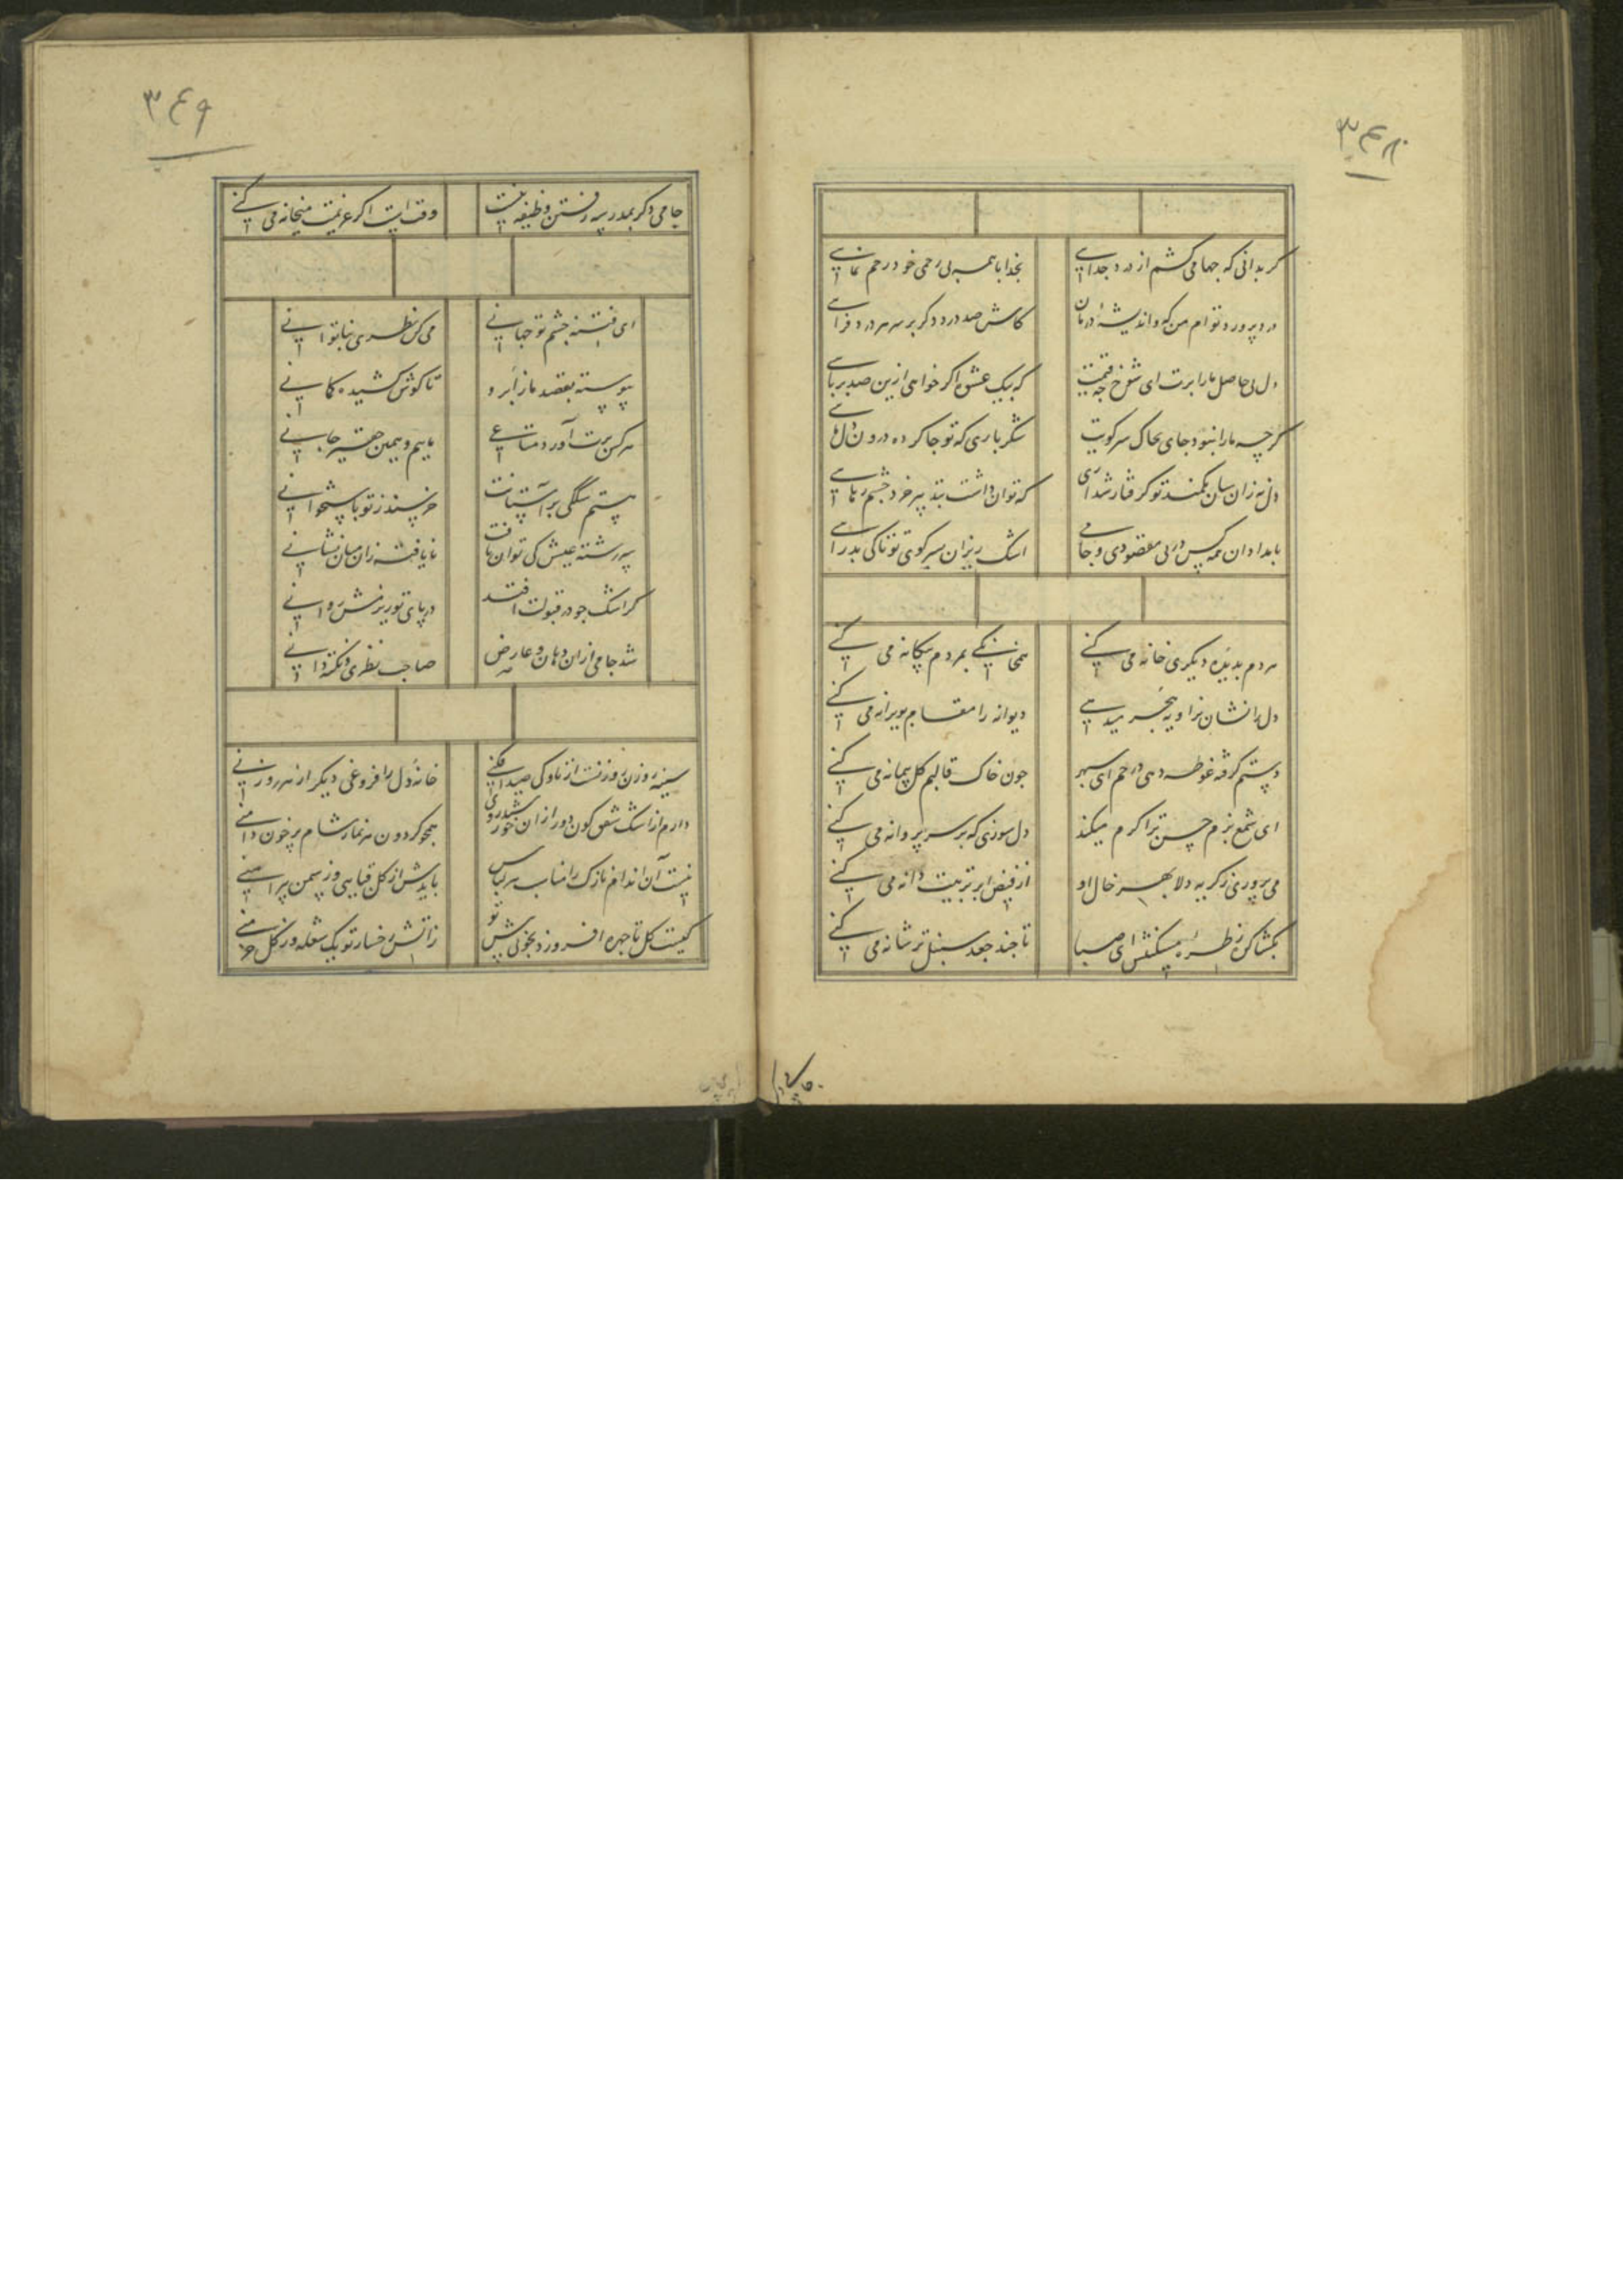 ۳۴۸
گر بدانی که چها می کشم از درد جدایی
بخدا با همه بی رحمی خود رحم نمایی
درد پرورد توام من که و اندیشه درمان
کاش صد درد دگر بر سر هر درد فزایی
دل بی حاصل ما را برت ای شوخ چه قیمت
که بیک عشوه اگر خواهی ازین صد بربایی
گرچه ما را نبود جای بخاک سر کویت
شکر باری که تو جا کرده درون دل مایی
دل نه زان سان بکمند تو گرفتار شد ای
که توان داشت بتدبیر خرد چشم رهایی
بامدادان همه کس در پی مقصودی و جامی
اشک ریزان بسر کوی تو تا کی بدر آیی
مردم بدیده دیگری خانه می کنی
همخانگی بمردم بیگانه می کنی
دل را نشان بزاویه هجر میدهی
دیوانه را مقام بویرانه می کنی
دستم گرفته غوطه دهی در خم ای سپهر
چون خاک قالبم گل پیمانه می کنی
ای شمع بزم حسن ترا گرم میکند
دل سوزی که بر سر پروانه می کنی
می پروری ز گریه دلا بهر خال او
از فیض ابر تربیت دانه می کنی
بگشا گره ز طره مشکینش ای صبا
تا چند جعد سنبل تر شانه می کنی
۳۴۹
جامی دگر بمدرسه رفتن وظیفه نیست
وقت است اگر عزیمت میخانه می کنی
ای فتنه چشم تو جهانی
می کن نظری بناتوانی
پیوسته بقصد ما ز ابرو
تا گوش کشیده کمانی
هر کس برت آورد متاعی
ماییم و همین حقیر جانی
هستم سگکی بر آستانت
خرسند ز تو باستخوانی
سررشته عیش کی توان یافت
نایافته زان میان نشانی
گر اشک چو در قبولت افتد
در پای تو ریزمش روانی
شد جامی ازان دهان و عارض
صاحب نظری و نکته دانی
سینه روزن روزنست از ناوک صید افکنی
خانه دل را فروغی دیگر از هر روزنی
دارم از اشک شفق گون دور ازان خورشید روی
همچو گردون هر نماز شام پر خون دامنی
نیست آن اندام نازک را مناسب هر لباس
بایدش از گل قبایی وز سمن پیراهنی
کیست گل تا چهره افروزد بخوبی پیش تو
ز آتش رخسار تو یک شعله وز گل خرمنی